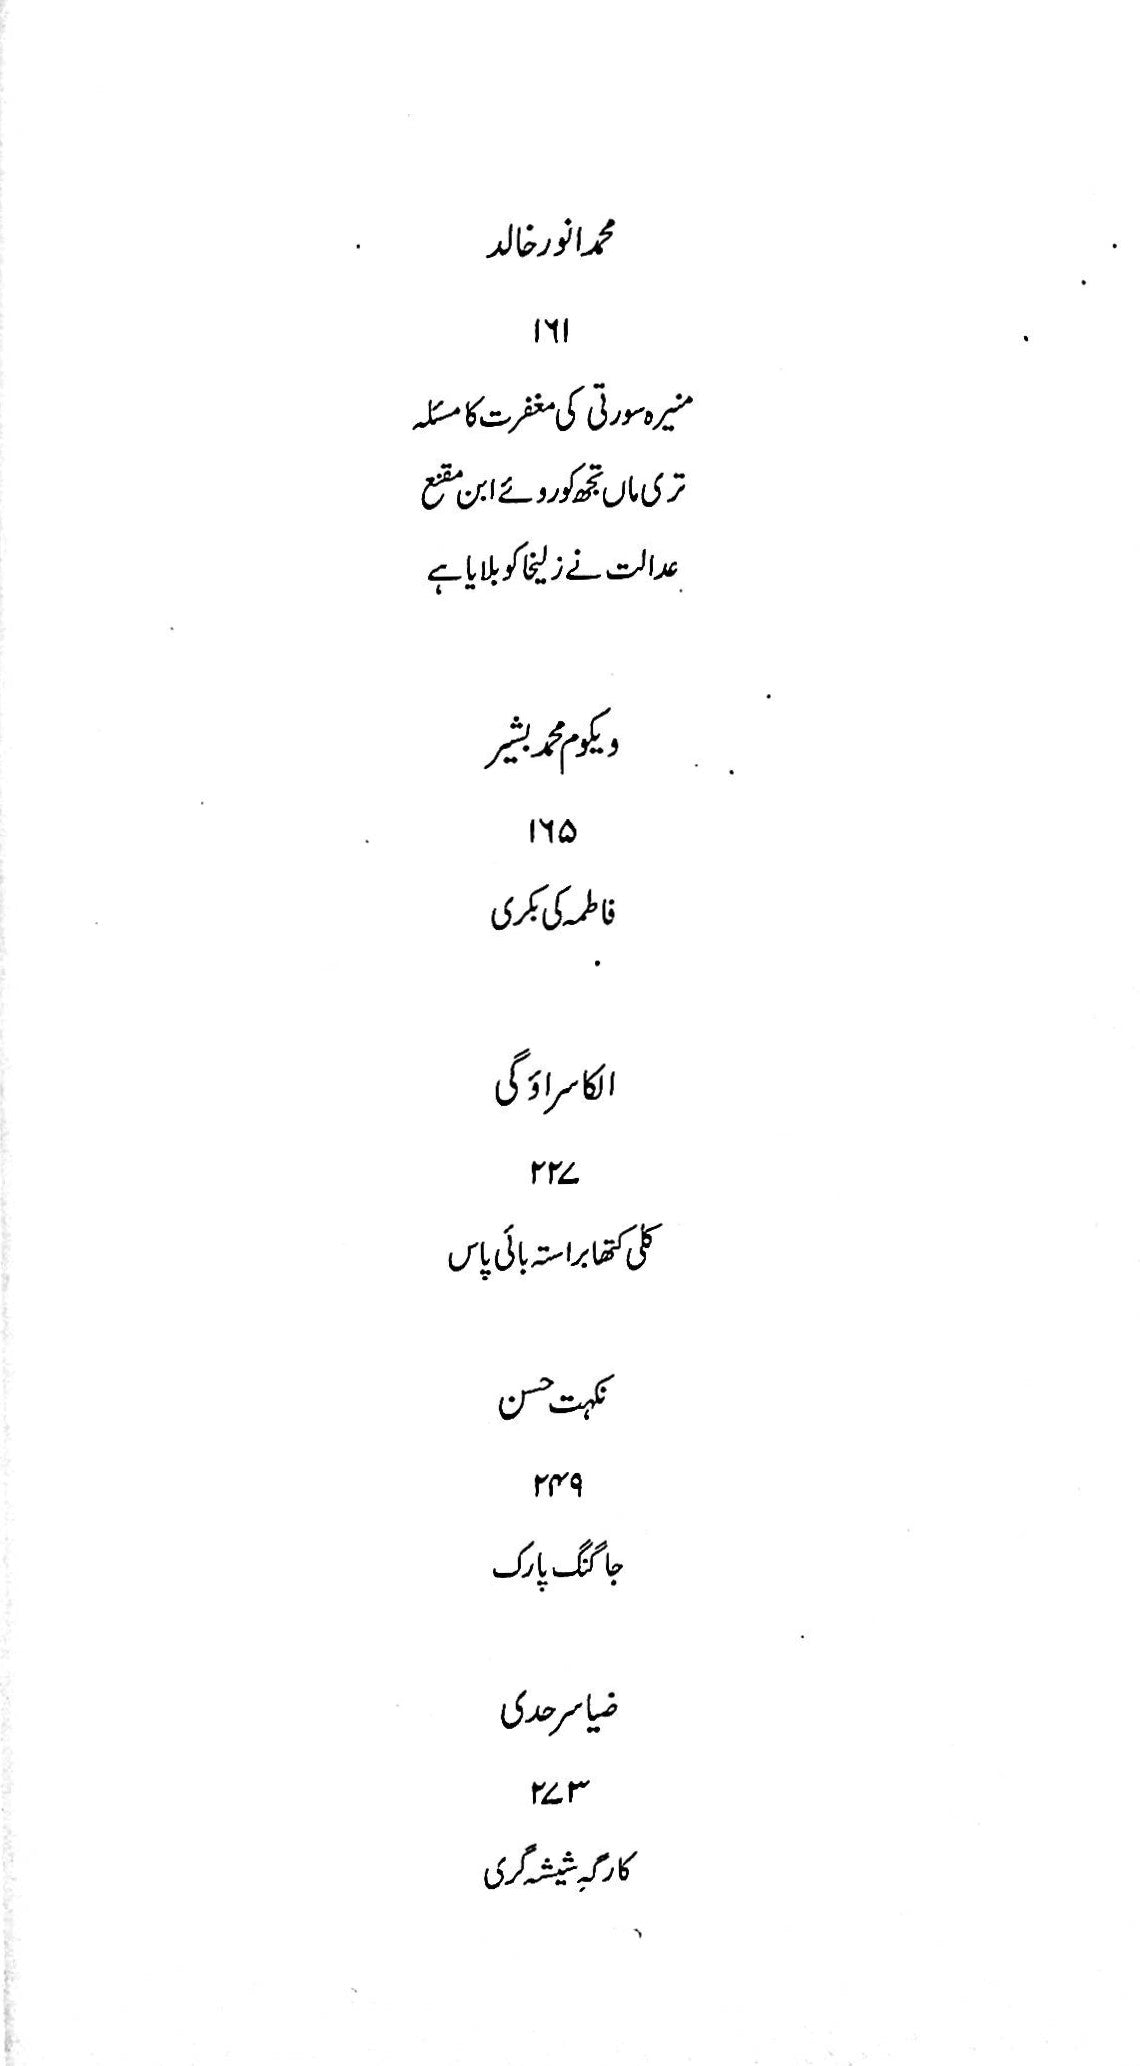 محمد انور خالد
۱۶۱
منیرہ سورتی کی مغفرت کا مسئلہ
تری ماں تجھ کو روئے ابن مقنع
عدالت نے زلیخا کو بلایا ہے
ویکوم محمد بشیر
۱۶۵
فاطمہ کی بکری
الکا سراؤگی
۲۲۷
کلی کتھا براستہ بائی پاس
نکہت حسن
۲۴۹
جاگنگ پارک
ضیا سرحدی
۲۷۳
کارگہِ شیشہ گری